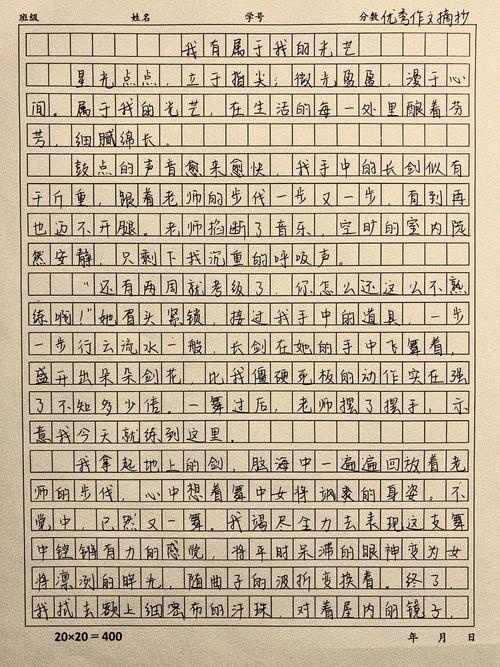 班级 姓名 学号 分数 优秀作文摘抄
我有属于我的光芒
星光点点，立于指尖；微光盈盈，漫于心
间。属于我的光芒，在生活的每一处里酿着芬
芳，细腻绵长。
鼓点的声音愈来愈快，我手中的长剑似有
千斤重，跟着老师的步伐一步又一步，直到再
也迈不开腿。老师掐断了音乐，空旷的室内陡
然安静，只剩下我沉重的呼吸声。
“还有两周就考级了，你怎么还这么不熟
练啊！”她眉头紧锁，接过我手中的道具，一步
一步行云流水一般，长剑在她的手中飞舞着，
盛开出朵朵剑花，比我僵硬死板的动作实在强
了不知多少倍。一舞过后，老师摆了摆手，示
意我今天就练到这里。
我拿起地上的剑，脑海中一遍遍回放着老
师的步伐，心中想着舞中女将飒爽的身姿。不
觉中，已然又一舞。我竭尽全力去表现这支舞
中铿锵有力的感觉，将平时呆滞的眼神变为女
将凛冽的眸光，随曲子的波折变换着。终了，
我拭去额上细密布的汗珠，对着屋内的镜子，
20×20=400 年 月 日